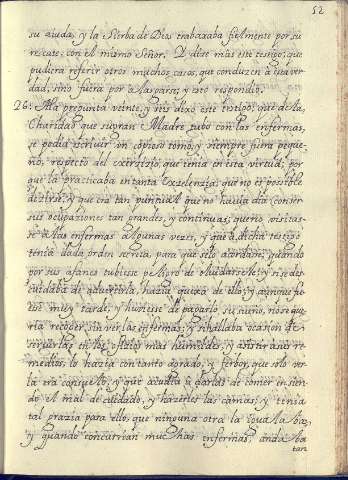 52
su aiuda, y la Sierba de Dios trabaxaba fielmente por su
rescate, con el mismo Señor. Y dixo mas este testigo, que
pudiera referir otros muchos casos, que conduzen a esta ver
dad, sino fuera por alargarse, y esto respondio.
26. A la pregunta veinte, y seis dixo este testigo, que de la
Charidad que su gran Madre tubo con las enfermas,
se podia escriuir un copioso tomo, y siempre fuera peque-
ño, respecto del exerzizio, que tenia en esta virtud; por
que la practicaba en tanta exzelenzia, que no es posible
dezirse, y que era tan puntual que no hauia dia, con ser
sus ocupaziones tan grandes, y continuas, que no visitas-
se a las enfermas algunas vezes, y que a dicha testigo
tenia dada orden secreta, para que se lo acordara, quando
por sus afanes tubiesse peligro de oluidarsele; y si se des
cuidaba de aduertirla, hazia quexa de ello, y aunque fu
esse muy tarde, y huuiesse de pagarlo su sueño, no se que
ria recoger, sin ver las enfermas, y si hallaba ocasion de
seruirlas en los ofizios mas humildes, y assistir a sus re-
medios, lo hazia con tanto agrado, y ferbor, que solo ver
la era consuelo, y que acudia a darlas de comer en sien-
do el mal de cuidado, y hazerles las camas, y tenia
tal grazia para ello, que ninguna otra la igualaba,
y quando concurrian muchas enfermas, andaba
tan